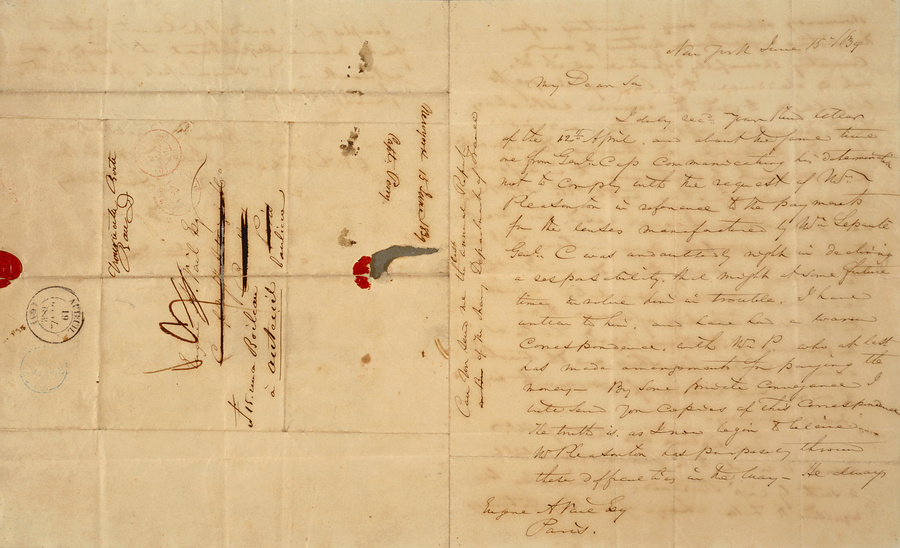 New York June 15th 1839
My Dear Sir
I duly recd. your kind letter
of the 12th April, and about the same time
one from Genl. Cass communicating his determination
not to comply with the request of Mr.
Pleasonton in reference to the payments
for the lenses manufactured by Mr. Lepaute
Genl. C was undoubtedly right in declining
a responsibility that might at some future
time involve him in trouble. I have
written to him, and have had a warm
correspondence with Mr. P. who at last
has made arrangements for paying the
money — By some private conveyance I
will send you copies of this correspondence
The truth is, as I now begin to believe
Mr Pleasonton has purposely thrown
these difficulties in the way — He always
Eugene A Vail Esq
Paris.
Can you send me the annual
of the Navy Department of France
Newyork 15 June 1839
Capt. Perry
Vail Esq
rue Boileau
à auteuil banlieue
19